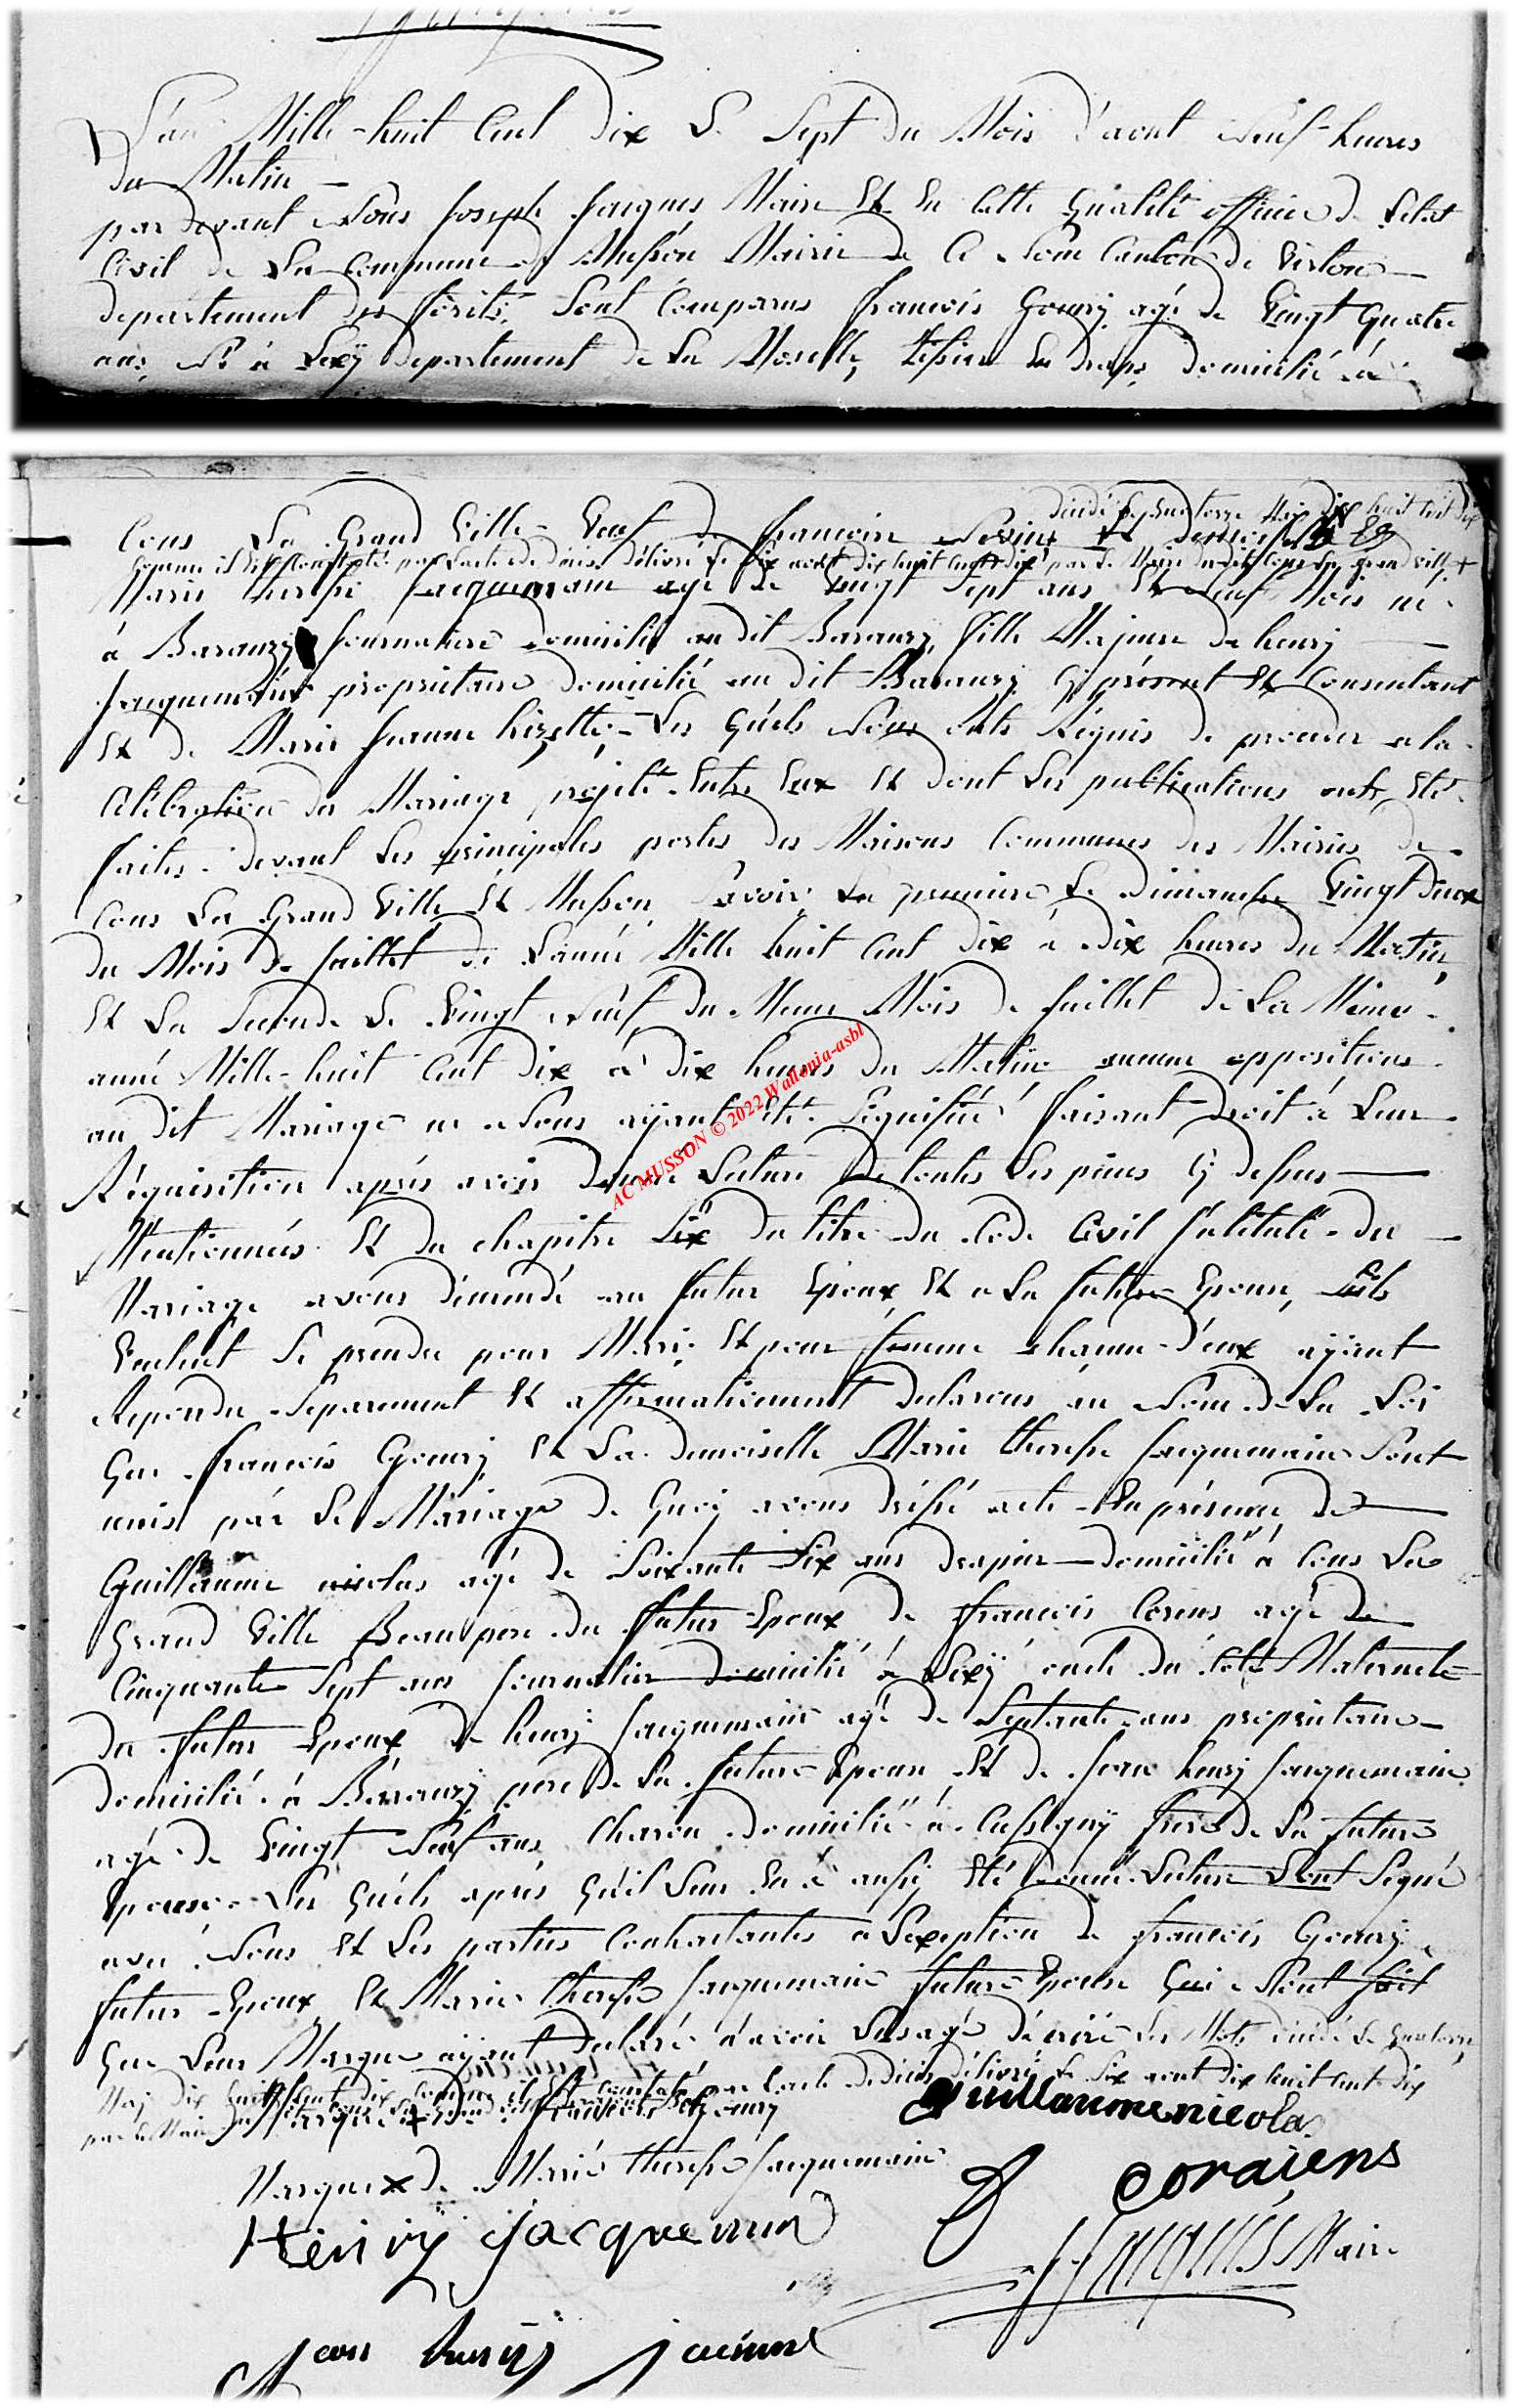 L'an Mille-huit Cent dix Le Sept du Mois d'aout neuf-heures
du Matin
par devant Nous Joseph Jacques Maire Et En Cette Qualité officier de L'etat
Civil de La Commune de Musson Mairie de Ce Nom Canton de Virton
departement des forêts, Sont Comparus francois Goury agé de Vingt Quatre
ans, Né à Lexÿ departement de La Moselle, Tissier En draps, domicilié à
décédé Le Quatorze Mai dix huit Cent dix
Cons La Grand Ville Veuf de francoise Et demoiselle
Comme il Est Constaté par L'acte de déces délivré Le Six aout dix huit Cent dix par Le Maire dudit Cons La grand ville
Marie therese Jacquemain agé de Vingt Sept ans Et Neuf Mois né
à Baranzy Journaliere domicilié au dit Baranzy, fille Majeure de henry
Jacquemain proprietaire domicilié au dit Baranzy Cy présent Et Consentant
Et de Marie Jeanne Lizette, Les Quels Nous onts Réquis de proceder a la
Célébration du Mariage projeté Entre Eux Et dont Les publications onts Eté
faites devant Les principales portes des Maisons Communes des Mairies de
Cons La Grand Ville Et Musson, Savoir La premiere Le dimanche Vingt deux
du Mois de Juillet de L'année Mille huit Cent dix à dix heures du Matin,
Et La Seconde Le Vingt Neuf du Meme Mois de Juillet de La Même
année Mille-huit Cent dix à dix heures du Matin aucune oppositions
au dit Mariage ne Nous ayant Eté Signifiée faisant droit à Leur
Réquisition aprés avoir Donné Lecture De toutes Les pieces Cy dessus
Mentionnées Et du chapitre Six du titre du Code Civil Intitulé du
Mariage avons démendé au futur Epoux Et a La future Epouse, S'ils
Veulent Se prendre pour Mary Et pour femme chacun d'eux ayant
Repondu Separement Et affirmativement declarons au Nom de La Loi
Que francois Goury Et La demoiselle Marie therese Jacquemain Sont
unis par Le Mariage de Quoy avons dréssé acte En présence de
Guillaume nicolas agé de Soixante Six ans drapier domicilié à Cons La
Grand Ville Beaupere du futur Epoux de francois Corens agé de
Cinquante Sept ans Journalier domicilié à Lexÿ oncle du Coté Maternele
du futur Epoux de henry Jacquemain agé de Septante ans proprietaire
domicilié à Baranzÿ pere de La future Epouse Et de Jean henry Jacquemain
agé de Vingt Neuf ans Charon domicilié à Cussigny frere de La future
Epouse Les Quels aprés Qu'il Leur En à aussy Eté Donné Lecture Sont Signé
avec Nous Et Les parties Contractantes à L'exception de francois Goury
futur Epoux, Et Marie therese Jacquemain future Epouse Qui Nont fait
Que Leur Marque ayant declaré n'avoir L'usage d'écrire Les Mots décédé Le Quatorze
Maj dix huit Cent dix Comme il Est Constaté par L'acte de déces délivré Le Six aout dix huit Cent dix
par Le Maire
Marque + de francois Goury
Guillaume nicolas
Marque x de Marie therese Jacquemain
coraiens
Henrÿ jacquemin
J Jacques Maire
jean henrÿ
AC MUSSON © 2022 Wallonia-asbl